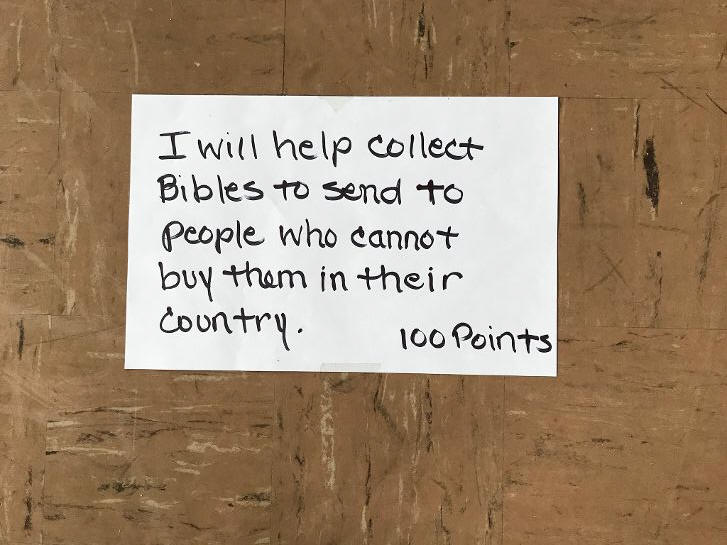 I will help collect
Bibles to send to
people who cannot
buy them in their
country.
100 Points